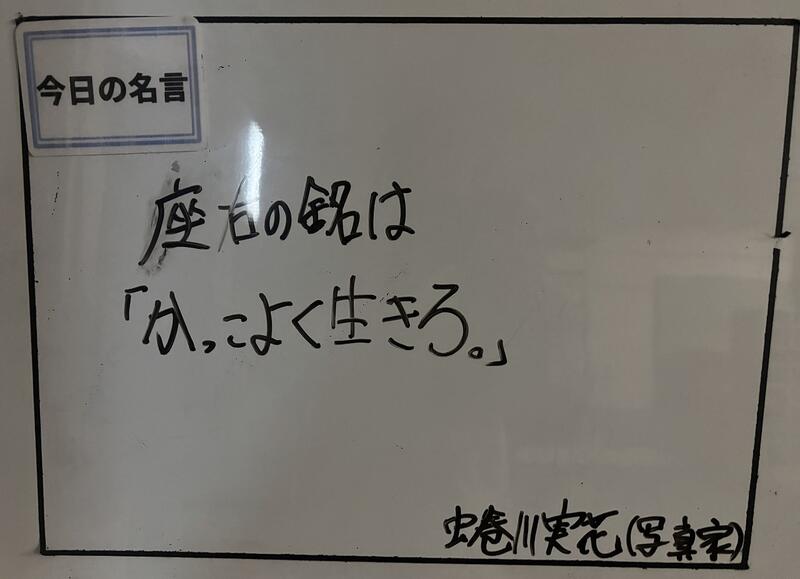 今日の名言
座右の銘は
「かっこよく生きろ。」
蜷川実花(写真家)